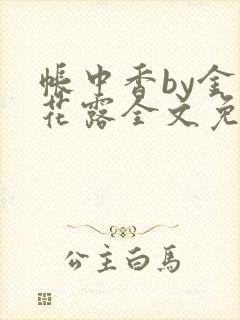 帳中香by金
花露全文免
公主白馬